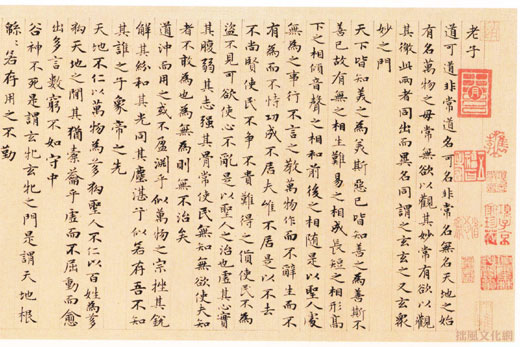 老子
道可道非常道名可名非常名無名天地之始
有名萬物之母常無欲以觀其妙常有欲以觀
其徼此兩者同出而異名同謂之玄玄之又玄衆
妙之門
天下皆知美之為美斯惡已皆知善之為善斯不
善已故有無之相生難易之相成長短之相形高
下之相傾音聲之相和前後之相隨是以聖人處
無為之事行不言之教萬物作而不辭生而不
有為而不恃功成不居夫惟不居是以不去
不尚賢使民不爭不貴難得之貨使民不為
盜不見可欲使心不亂是以聖人之治也虛其心實
其腹弱其志強其骨常使民無知無欲使夫知
者不敢為也為無為則無不治矣
道沖而用之或不盈淵乎似萬物之宗挫其銳
解其紛和其光同其塵湛乎似若存吾不知
其誰之子象帝之先
天地不仁以萬物為芻狗聖人不仁以百姓為芻
狗天地之間其猶橐籥乎虛而不屈動而愈
出多言數窮不如守中
谷神不死是謂玄牝玄牝之門是謂天地根
緜〻若存用之不勤
拙風文化網